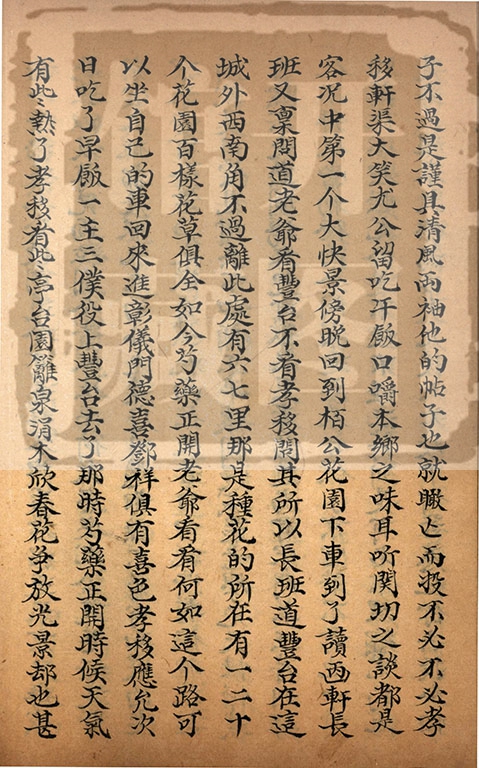 子不過是謹具清風両袖他的帖子也就瞰亡而投不必不必孝
移軒渠大笑尤公留吃午飯口嚼本鄉之味耳听関切之談都是
客况中第一个大快景傍晚回到栢公花園下車到了讀画軒長
班又稟問道老爺看豐台不看孝移問其所以長班道豐台在這
城外西南角不過離此處有六七里那是種花的所在有一二十
个花園百樣花草俱全如今芍藥正開老爺看看何如這个路可
以坐自己的車回來進彰儀門德喜鄧祥俱有喜色孝移應允次
日吃了早飯一主三僕役上豐台去了那時芍藥正開時候天氣
有些熱了孝移看此亭台園籬泉涓木欣春花爭放光景却也甚